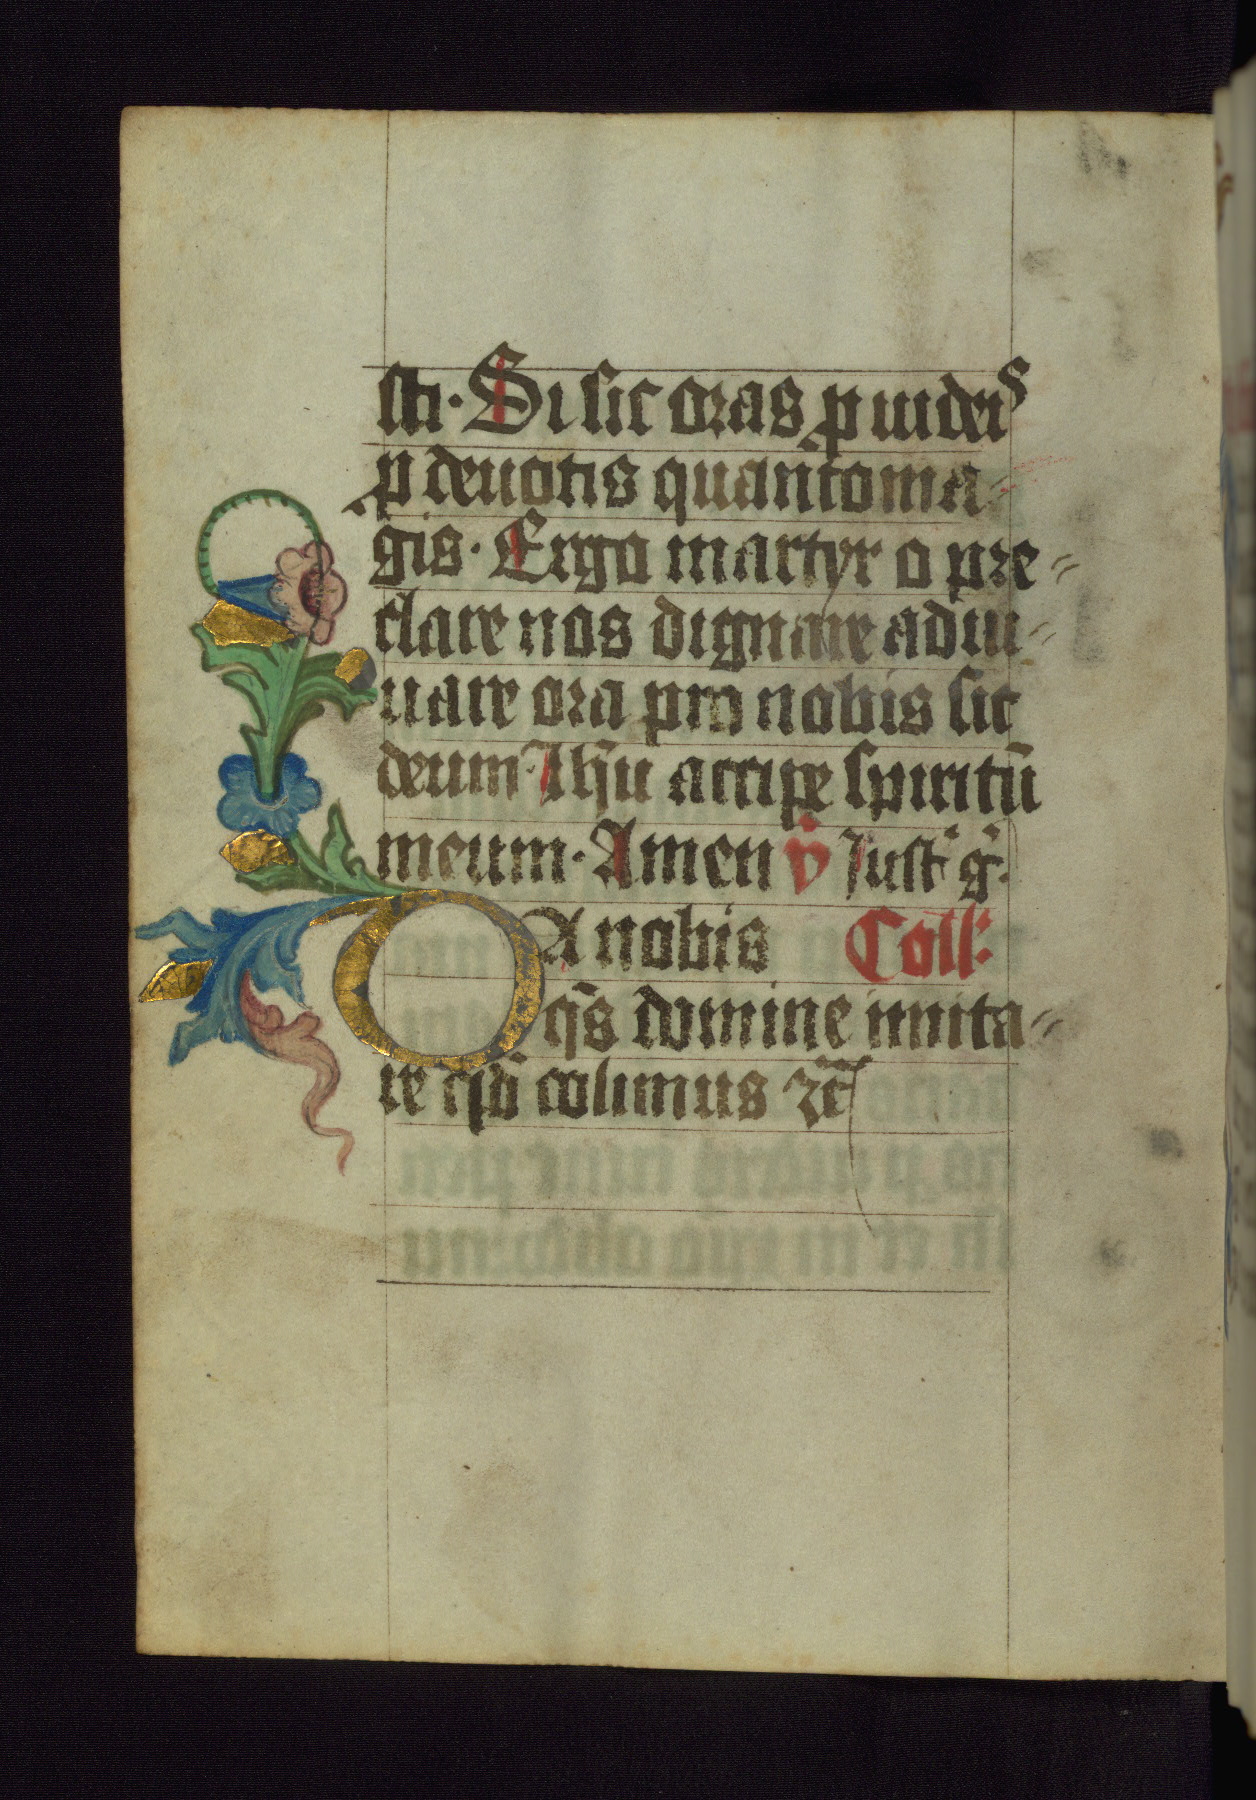 sti. Si sic oras p uideis
p deuotis quantoma=
gis. Ergo martyr o pre=
clare nos dignare adiu=
uare ora pro nobis sic
deum. Ihu accipe spiritū
meum. Amen v̄ Iust' g̃.
DA nobis Coll:
qs̄ domine imita=
re qd̄ colimus ⁊c̄